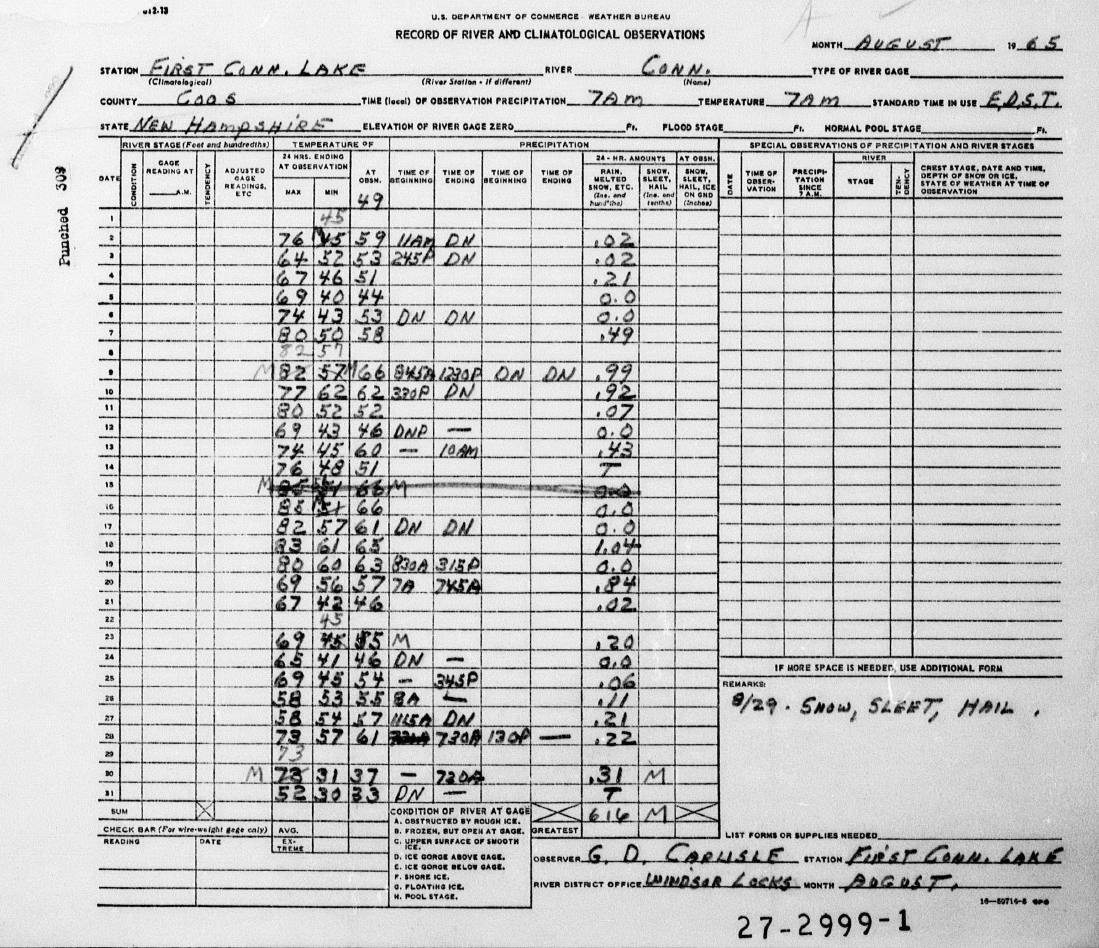 612-13
U.S. DEPARTMENT OF COMMERCE WEATHER BUREAU
RECORD OF RIVER AND CLIMATOLOGICAL OBSERVATIONS
MONTH AUGUST 1965
STATION FIRST CONN. LAKE RIVER CONN. TYPE OF RIVER GAGE
(Climatological) (River Station - if different) (Name)
COUNTY COOS TIME (local) OF OBSERVATION PRECIPITATION 7AM TEMPERATURE 7AM STANDARD TIME IN USE E.D.S.T.
STATE NEW HAMPSHIRE ELEVATION OF RIVER GAGE ZERO Ft. FLOOD STAGE Ft. NORMAL POOL STAGE Ft.
Punched 309
RIVER STAGE (Feet and hundredths) TEMPERATURE OF PRECIPITATION SPECIAL OBSERVATIONS OF PRECIPITATION AND RIVER STAGES
DATE CONDITION GAGE READING AT A.M. TENDENCY ADJUSTED GAGE READINGS, ETC 24 HRS. ENDING AT OBSERVATION MAX MIN AT OBSN. TIME OF BEGINNING TIME OF ENDING TIME OF BEGINNING TIME OF ENDING 24 - HR. AMOUNTS RAIN, MELTED SNOW, ETC. (Ins. and hundths) SNOW, SLEET, HAIL (Ins. and tenths) AT OBSN. SNOW, SLEET, HAIL, ICE ON GND (Inches)
DATE TIME OF OBSERVATION PRECIPITATION SINCE 7 A.M. RIVER STAGE TENDENCY CREST STAGE, DATE AND TIME, DEPTH OF SNOW OR ICE, STATE OF WEATHER AT TIME OF OBSERVATION
49
1 45
2 76 45 59 11AM DN .02
3 64 52 53 245P DN .02
4 67 46 51 .21
5 69 40 44 0.0
6 74 43 53 DN DN 0.0
7 80 50 58 .49
8 82 57
9 M 82 57 M 66 845A 1230P DN DN .99
10 77 62 62 330P DN .92
11 80 52 52 .07
12 69 43 46 DNP — 0.0
13 74 45 60 — 10AM .43
14 76 48 51 T
15 M 85 51 66 M 0.0
16 85 51 66 0.0
17 82 57 61 DN DN 0.0
18 83 61 65 1.04
19 80 60 63 830A 315P 0.0
20 69 56 57 7A 745A .84
21 67 42 46 .02
22 45
23 69 45 55 M .20
24 65 41 46 DN — 0.0
25 69 45 54 — 345P .06
26 58 53 55 8A — .11
27 58 54 57 1115A DN .21
28 73 57 61 730A 130P — .22
29 73
30 M 73 31 37 — 730A .31 M
31 52 30 33 DN — T
SUM 616 M
IF MORE SPACE IS NEEDED, USE ADDITIONAL FORM
REMARKS:
8/29 - SNOW, SLEET, HAIL.
CHECK BAR (For wire-weight gage only) AVG.
READING DATE EXTREME
CONDITION OF RIVER AT GAGE
A. OBSTRUCTED BY ROUGH ICE.
B. FROZEN, BUT OPEN AT GAGE.
C. UPPER SURFACE OF SMOOTH ICE.
D. ICE GORGE ABOVE GAGE.
E. ICE GORGE BELOW GAGE.
F. SHORE ICE.
G. FLOATING ICE.
H. POOL STAGE.
GREATEST
LIST FORMS OR SUPPLIES NEEDED
OBSERVER G. D. CARLISLE STATION FIRST CONN. LAKE
RIVER DISTRICT OFFICE WINDSOR LOCKS MONTH AUGUST.
16—50714-5 GPO
27-2999-1